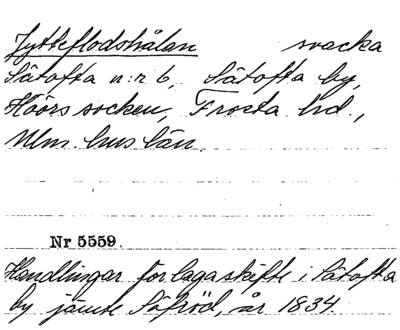 Jytteflodshålan svacka
Sätofta n:r 6, Sätofta by,
Höörs socken, Frosta hd.,
Mlm. hus län.
Nr 5559.
Handlingar för laga skifte i Sätofta
by jämte Säfröd, år 1834.